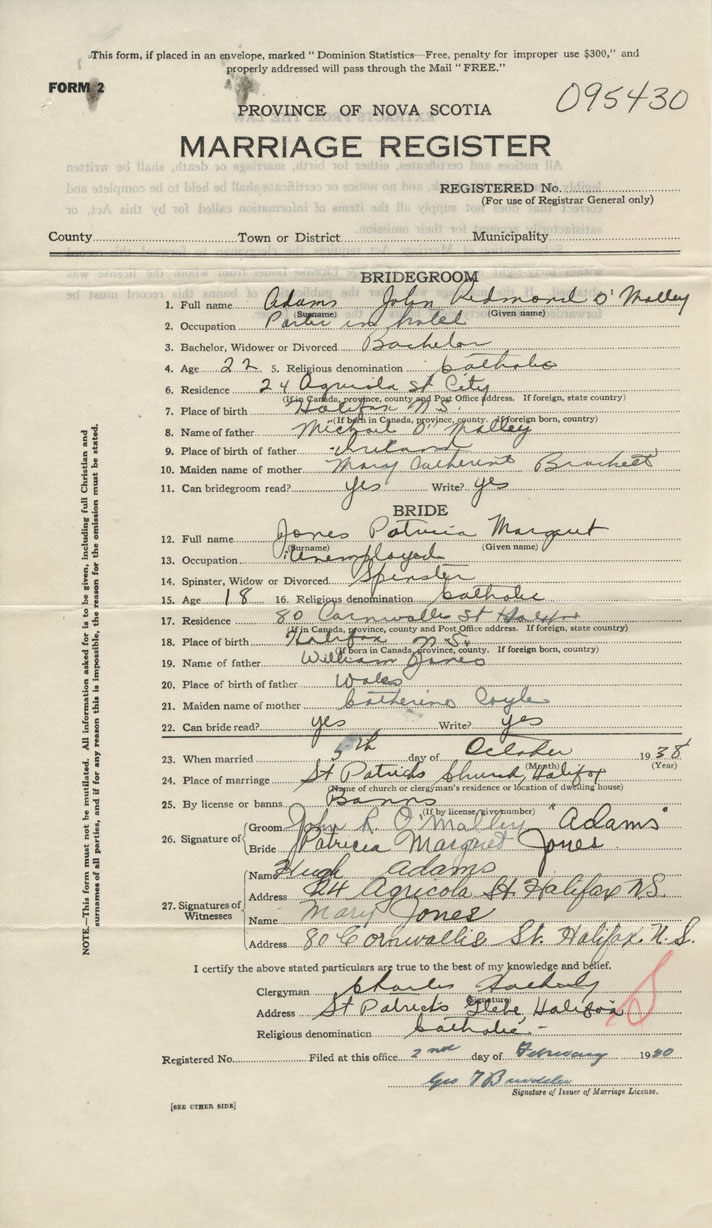 This form, if placed in an envelope, marked "Dominion Statistics—Free, penalty for improper use $300," and
properly addressed will pass through the Mail "FREE."
FORM 2
095430
PROVINCE OF NOVA SCOTIA
MARRIAGE REGISTER
REGISTERED No.
(For use of Registrar General only)
County Town or District Municipality
BRIDEGROOM
1. Full name Adams John Redmond O'Malley
(Surname) (Given name)
2. Occupation Porter in hotel
3. Bachelor, Widower or Divorced Bachelor
4. Age 22 5. Religious denomination Catholic
6. Residence 24 Agricola St City
(If in Canada, province, county and Post Office address. If foreign, state country)
7. Place of birth Halifax N.S.
(If born in Canada, province, county. If foreign born, country)
8. Name of father Michael O'Malley
9. Place of birth of father Ireland
10. Maiden name of mother Mary Catherine Brackett
11. Can bridegroom read? yes Write? yes
BRIDE
12. Full name Jones Patricia Margaret
(Surname) (Given name)
13. Occupation Unemployed
14. Spinster, Widow or Divorced Spinster
15. Age 18 16. Religious denomination Catholic
17. Residence 80 Cornwallis St Halifax
(If in Canada, province, county and Post Office address. If foreign, state country)
18. Place of birth Halifax N.S.
(If born in Canada, province, county. If foreign born, country)
19. Name of father William Jones
20. Place of birth of father Wales
21. Maiden name of mother Catherine Coyle
22. Can bride read? yes Write? yes
23. When married 5th day of October 1938
(Month) (Year)
24. Place of marriage St Patricks Church, Halifax
(Name of church or clergyman's residence or location of dwelling house)
25. By license or banns Banns
(If by license, give number)
26. Signature of Groom John R O'Malley "Adams"
Bride Patricia Margaret Jones
27. Signatures of Witnesses Name Hugh Adams
Address 24 Agricola St. Halifax N.S.
Name Mary Jones
Address 80 Cornwallis St. Halifax, N.S.
I certify the above stated particulars are true to the best of my knowledge and belief.
Clergyman Charles
Signature
Address St Patrick's Glebe, Halifax
Religious denomination Catholic
Registered No. Filed at this office 2nd day of February 1940
Geo
Signature of Issuer of Marriage License.
[SEE OTHER SIDE]
NOTE.—This form must not be mutilated. All information asked for is to be given, including full Christian and
surnames of all parties, and if for any reason this is impossible, the reason for the omission must be stated.